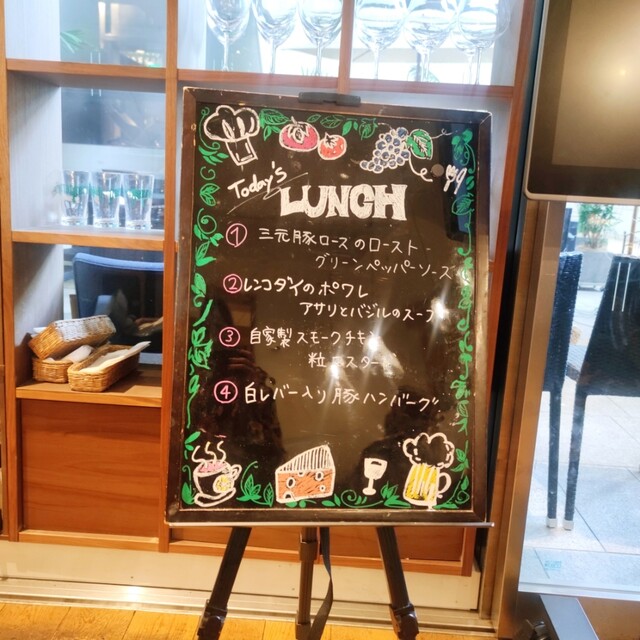 Today's
LUNCH
① 三元豚ロースのロースト
グリーンペッパーソース
② レンコダイのポワレ
アサリとバジルのスープ
③ 自家製スモークチキン
粒マスタード
④ 白レバー入り豚ハンバーグ